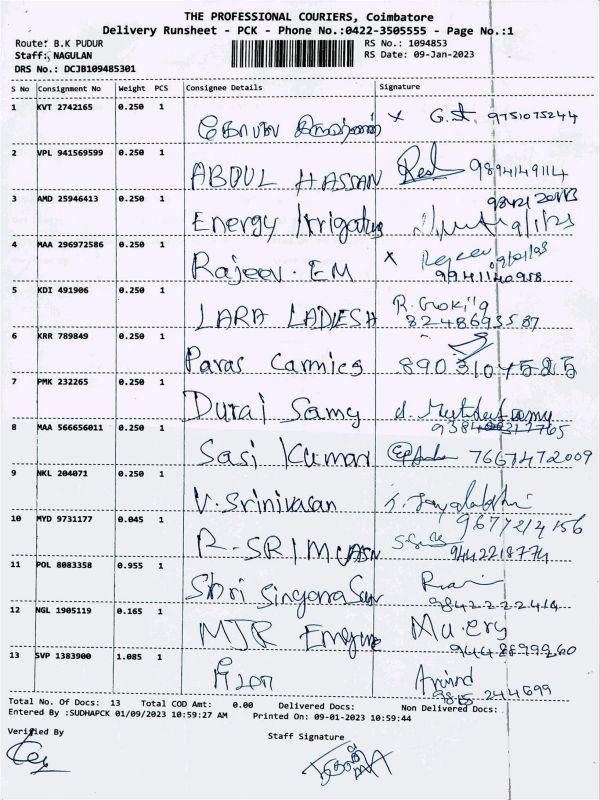 THE PROFESSIONAL COURIERS, Coimbatore
Delivery Runsheet - PCK - Phone No.:0422-3505555 - Page No.:1
Route: B.K PUDUR RS No.: 1094853
Staff: NAGULAN RS Date: 09-Jan-2023
DRS No.: DCJB109485301
S No Consignment No Weight PCS Consignee Details Signature
1 KVT 2742165 0.250 1 9751075244
2 VPL 941569599 0.250 1 ABDUL HASSAN 9894149114
3 AMD 25946413 0.250 1 Energy
4 MAA 296972586 0.250 1 Rajeev. EM x 9941140958
5 KDI 491906 0.250 1 LARA LADIESH R. 8248693587
6 KRR 789849 0.250 1 Paras Carmics 8903104585
7 PMK 232265 0.250 1 Durai Samy
8 MAA 566656011 0.250 1 Sasi Kumar 7667472009
9 NKL 204071 0.250 1 V. Srinivasan
10 MYD 9731177 0.045 1 9677214156
9442218774
11 POL 8083358 0.955 1 Shri 9842222414
12 NGL 1905119 0.165 1 MJR
13 SVP 1383900 1.085 1 Arvind
Total No. Of Docs: 13 Total COD Amt: 0.00 Delivered Docs: Non Delivered Docs:
Entered By :SUDHAPCK 01/09/2023 10:59:27 AM Printed On: 09-01-2023 10:59:44
Verified By Staff Signature